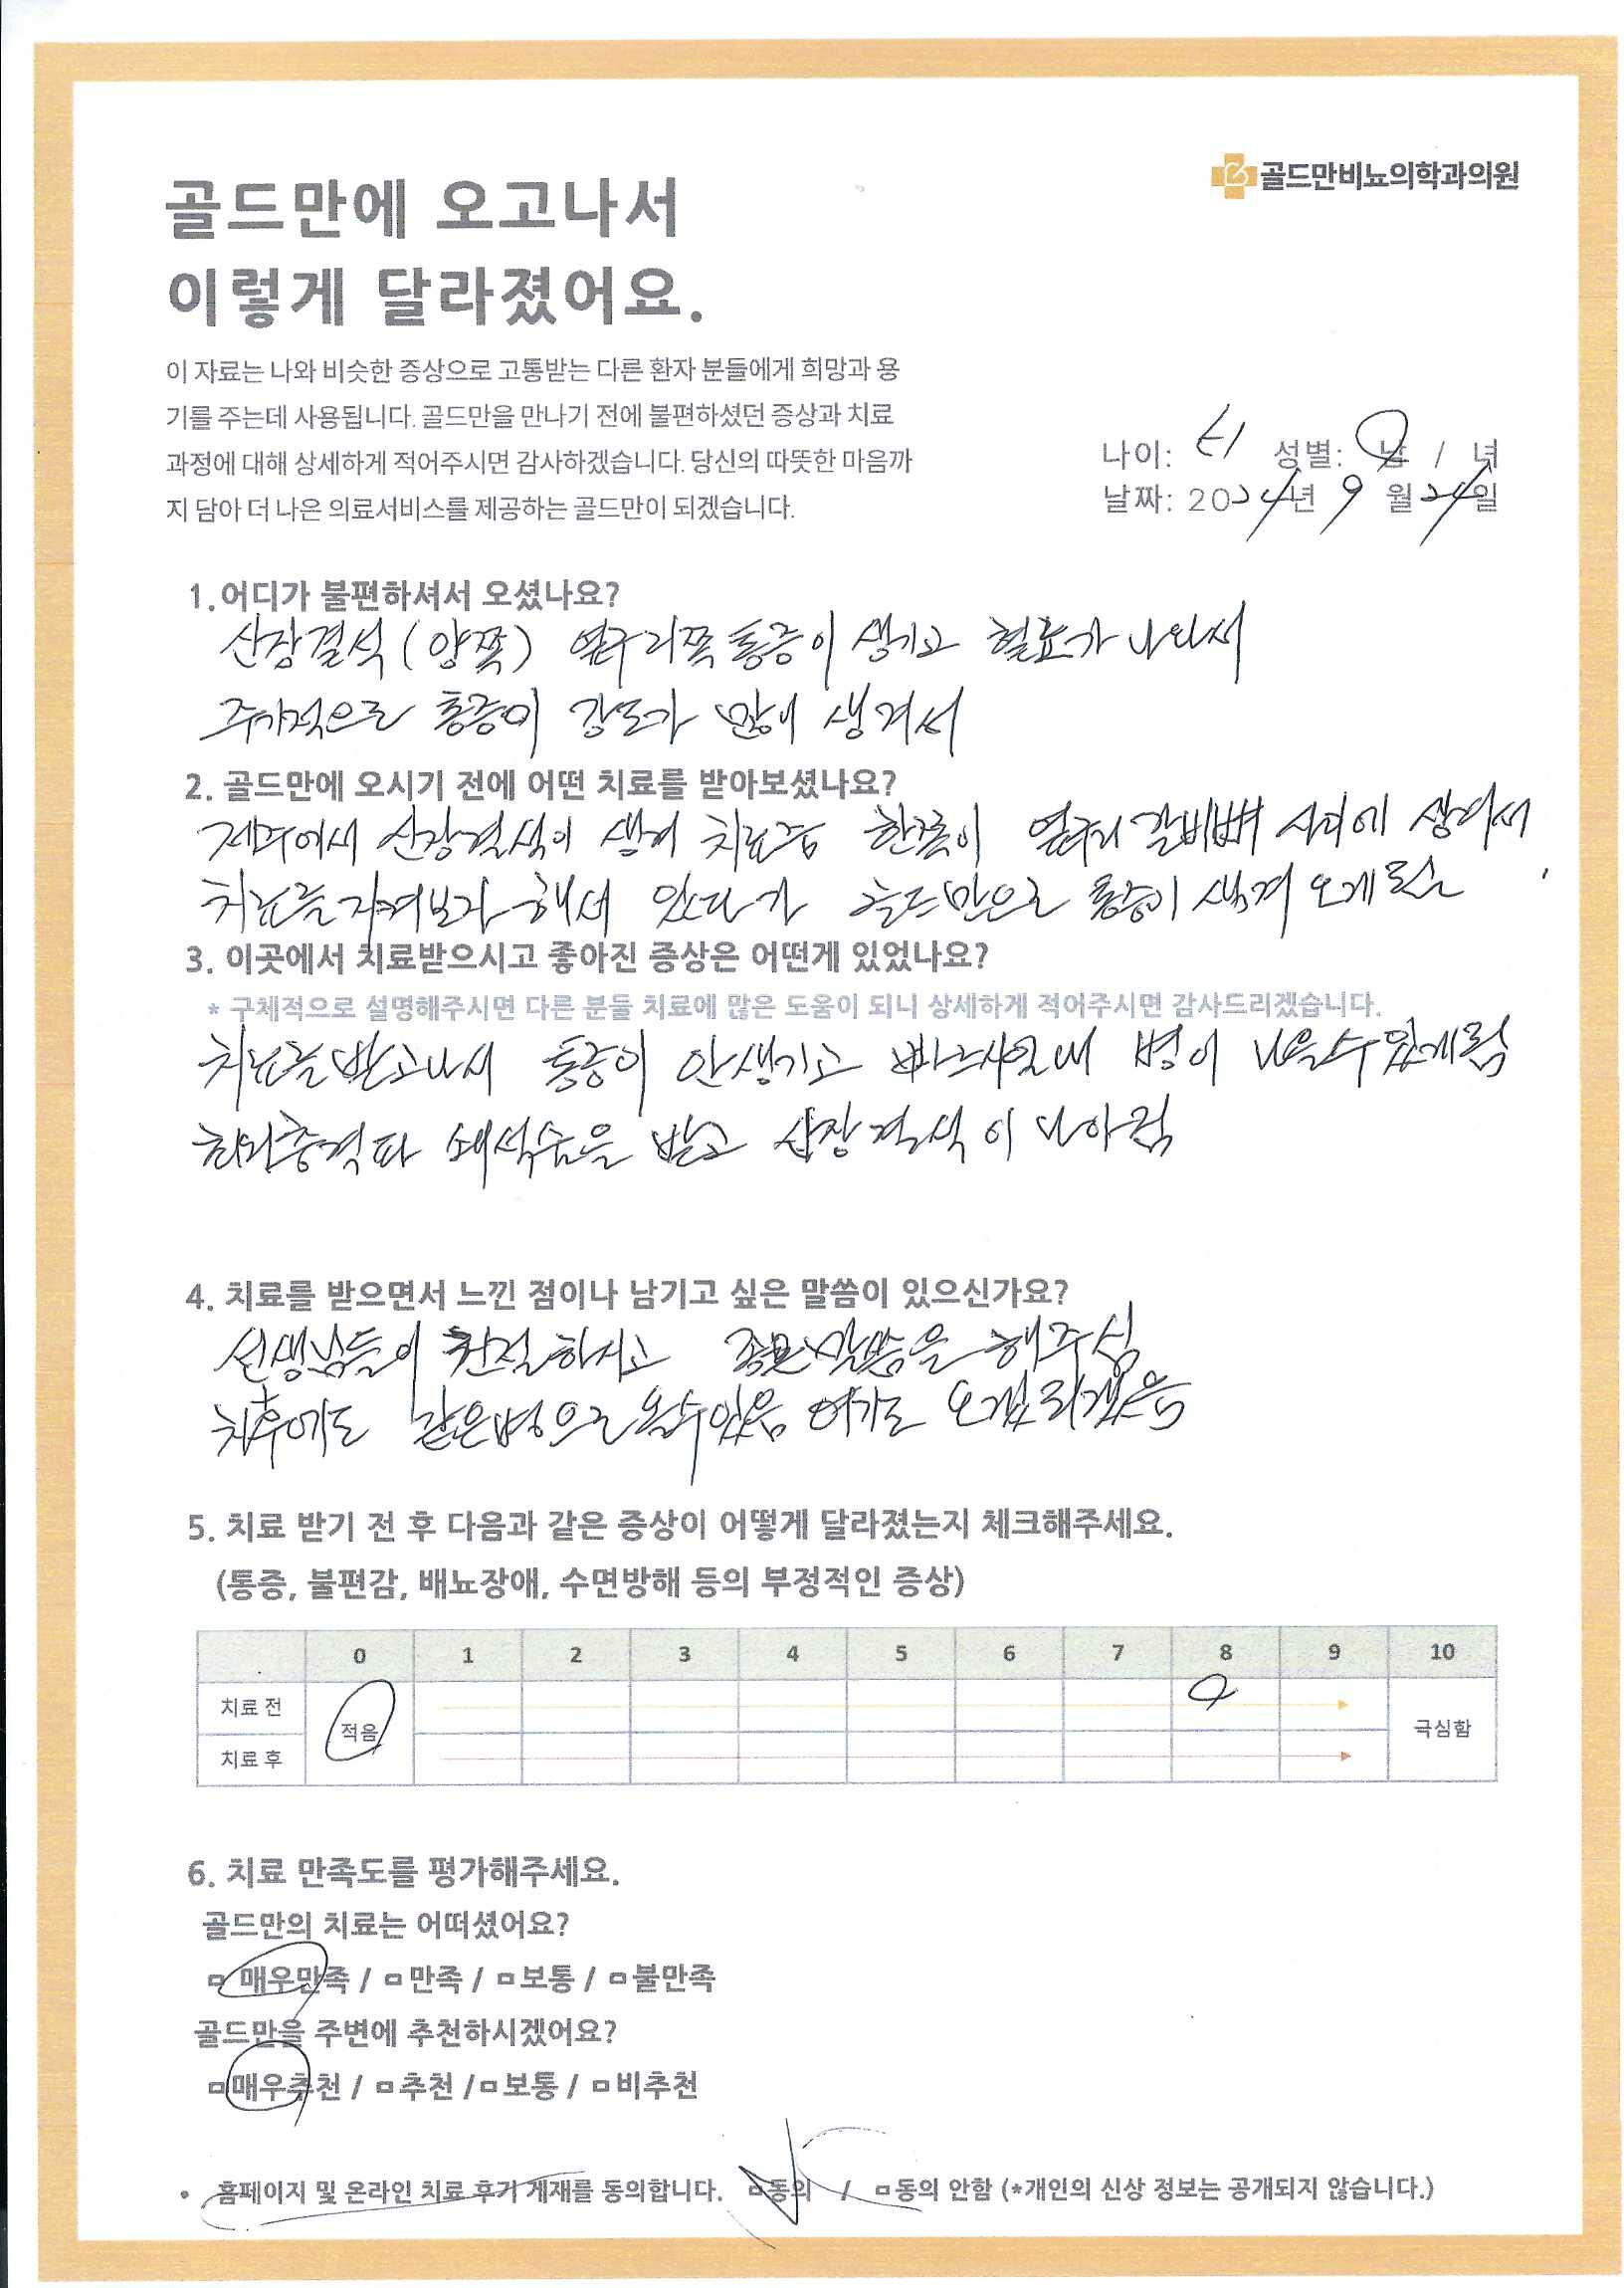 골드만비뇨의학과의원
골드만에 오고나서
이렇게 달라졌어요.
이 자료는 나와 비슷한 증상으로 고통받는 다른 환자 분들에게 희망과 용
기를 주는데 사용됩니다. 골드만을 만나기 전에 불편하셨던 증상과 치료
과정에 대해 상세하게 적어주시면 감사하겠습니다. 당신의 따뜻한 마음까
지 담아 더 나은 의료서비스를 제공하는 골드만이 되겠습니다.
나이: 성별: 남 / 녀
날짜: 2024년 9월 24일
1.어디가 불편하셔서 오셨나요?
신장결석(양쪽) 옆구리쪽 통증이 생기고 혈뇨가 나와서
주기적으로 통증이 강도가 많이 생겨서
2. 골드만에 오시기 전에 어떤 치료를 받아보셨나요?
제주에서 신장결석이 생겨 치료중 한쪽이 옆구리 갈비뼈 사이에 생겨서
치료를 해서 있다가 골드만으로 통증이 생겨 오게 됐음
3. 이곳에서 치료받으시고 좋아진 증상은 어떤게 있었나요?
* 구체적으로 설명해주시면 다른 분들 치료에 많은 도움이 되니 상세하게 적어주시면 감사드리겠습니다.
치료를 받고나서 통증이 안생기고 빠른시일내 병이 나을수있게됨
체외충격파 쇄석술을 받고 신장결석이
4. 치료를 받으면서 느낀 점이나 남기고 싶은 말씀이 있으신가요?
선생님들이 친절하시고 좋은말씀을 해주심
같은병으로 올수있음
5. 치료 받기 전 후 다음과 같은 증상이 어떻게 달라졌는지 체크해주세요.
(통증, 불편감, 배뇨장애, 수면방해 등의 부정적인 증상)
0 1 2 3 4 5 6 7 8 9 10
치료 전
적음 극심함
치료 후
6. 치료 만족도를 평가해주세요.
골드만의 치료는 어떠셨어요?
매우만족 / 만족 / 보통 / 불만족
골드만을 주변에 추천하시겠어요?
매우추천 / 추천 / 보통 / 비추천
• 홈페이지 및 온라인 치료 후기 게재를 동의합니다. 동의 / 동의 안함 (*개인의 신상 정보는 공개되지 않습니다.)